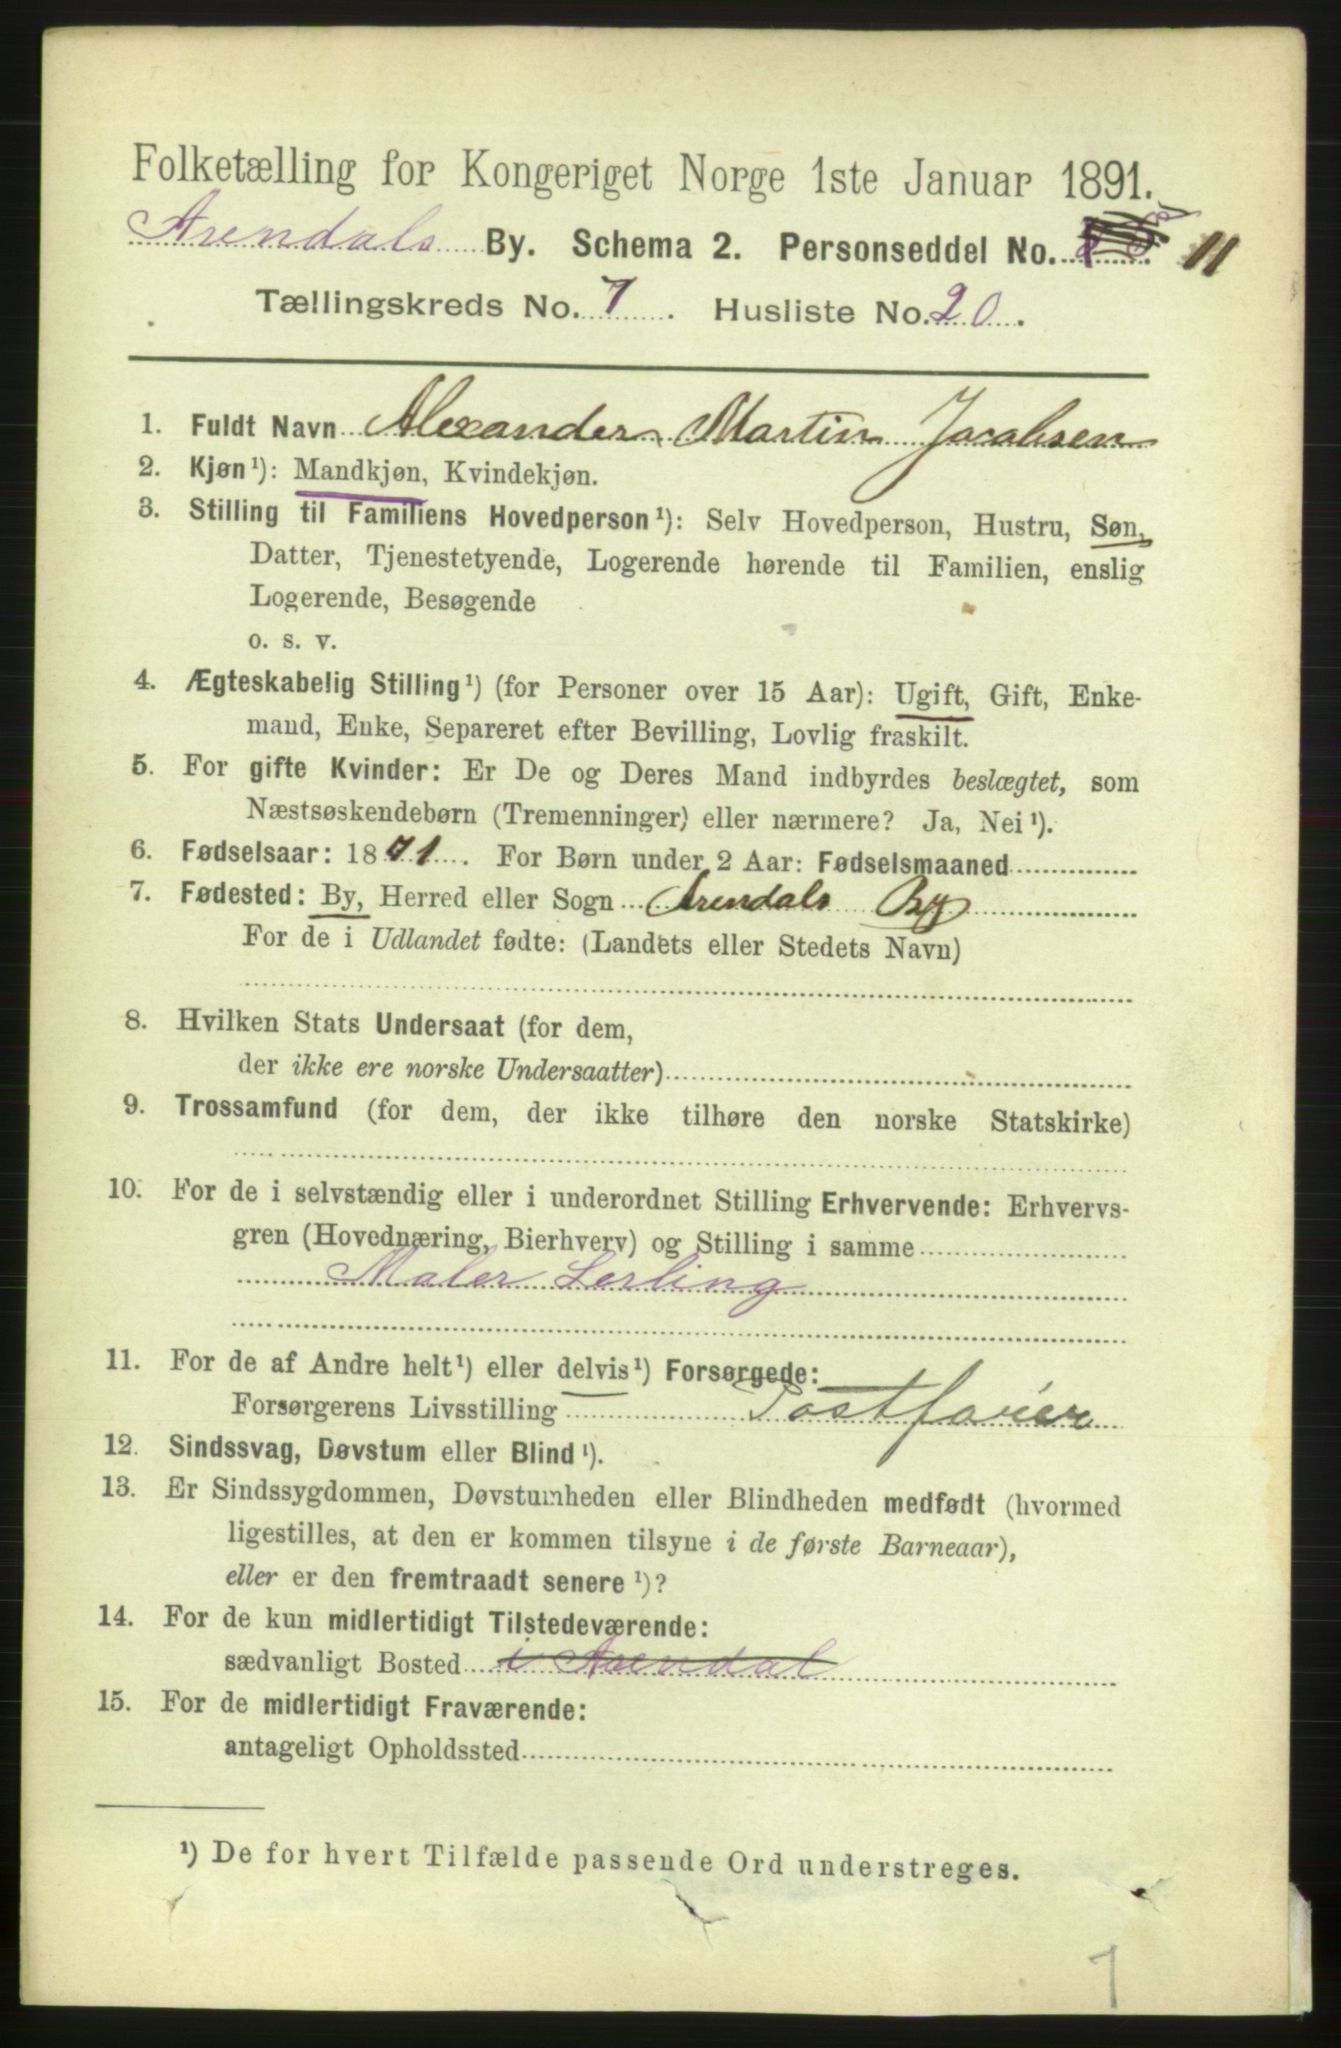 Folketælling for Kongeriget Norge 1ste Januar 1891.
Arendals By. Schema 2. Personseddel No. 11
Tællingskreds No. 7. Husliste No. 20.
1. Fuldt Navn Alexander Martin Jacobsen
2. Kjøn¹): Mandkjøn, Kvindekjøn.
3. Stilling til Familiens Hovedperson¹): Selv Hovedperson, Hustru, Søn,
Datter, Tjenestetyende, Logerende hørende til Familien, enslig
Logerende, Besøgende
o. s. v.
4. Ægteskabelig Stilling¹) (for Personer over 15 Aar): Ugift, Gift, Enke-
mand, Enke, Separeret efter Bevilling, Lovlig fraskilt.
5. For gifte Kvinder: Er De og Deres Mand indbyrdes beslægtet, som
Næstsøskendebørn (Tremenninger) eller nærmere? Ja, Nei¹).
6. Fødselsaar: 1871. For Børn under 2 Aar: Fødselsmaaned
7. Fødested: By, Herred eller Sogn Arendals By
For de i Udlandet fødte: (Landets eller Stedets Navn)
8. Hvilken Stats Undersaat (for dem,
der ikke ere norske Undersaatter)
9. Trossamfund (for dem, der ikke tilhøre den norske Statskirke)
10. For de i selvstændig eller i underordnet Stilling Erhvervende: Erhvervs-
gren (Hovednæring, Bierhverv) og Stilling i samme
Maler Lerling
11. For de af Andre helt¹) eller delvis¹) Forsørgede:
Forsørgerens Livsstilling Postfører
12. Sindssvag, Døvstum eller Blind¹).
13. Er Sindssygdommen, Døvstumheden eller Blindheden medfødt (hvormed
ligestilles, at den er kommen tilsyne i de første Barneaar),
eller er den fremtraadt senere¹)?
14. For de kun midlertidigt Tilstedeværende:
sædvanligt Bosted i Arendal
15. For de midlertidigt Fraværende:
antageligt Opholdssted
¹) De for hvert Tilfælde passende Ord understreges.
7